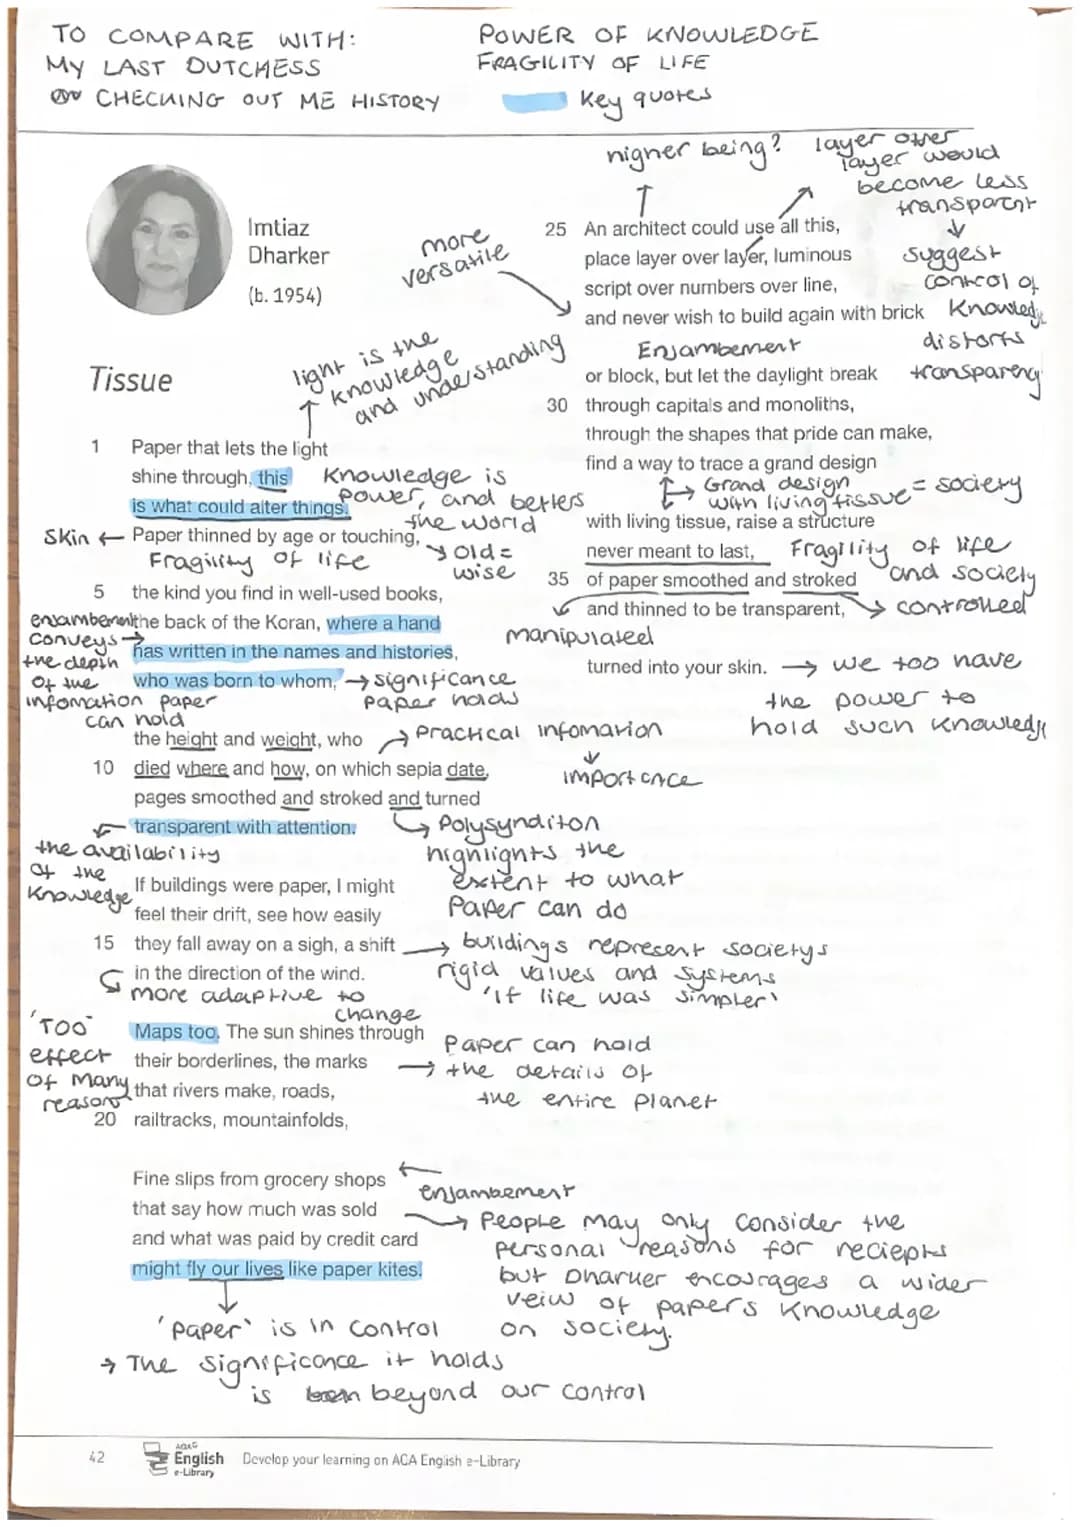 TO COMPARE WITH:
MY LAST DUTCHESS
CHECKING OUT ME HISTORY
POWER OF KNOWLEDGE
FRAGILITY OF LIFE
Key quotes
Imtiaz
Dharker
(b. 1954)
Tissue
more
versatile
light is the
knowledge
and understanding
1 Paper that lets the light
shine through, this
is what could alter things.
Knowledge is
power, and betters
the world
Skin ← Paper thinned by age or touching,
Fragility of life
old =
wise
5 the kind you find in well-used books,
the back of the Koran, where a hand
has written in the names and histories,
who was born to whom,
enjambement
conveys →
the depth
of the
infomation paper
can hold
→ significance
paper holds
the height and weight, who
10 died where and how, on which sepia date,
pages smoothed and stroked and turned
transparent with attention.
Practical infomation
↓
importance
the availability
of the
Knowledge
Polysynditon
highlights the
extent to what
Paper can do
If buildings were paper, I might
feel their drift, see how easily
15 they fall away on a sigh, a shift
in the direction of the wind.
more adaptive to
change
→ buildings represent societys
rigid values and systems
'if life was simpler'
Maps too. The sun shines through
their borderlines, the marks
that rivers make, roads,
20 railtracks, mountainfolds,
'TOO'
effect
of Many
reasons
Paper can hold
→ the details of
the entire planet
Fine slips from grocery shops
that say how much was sold
and what was paid by credit card
might fly our lives like paper kites.
← enjambement
→ People may only consider the
personal reasons for reciepts
but Dharker encourages a wider
veiw of papers Knowledge
on society.
'paper' is in control
→ The significance it holds
is beyond our control
higher being?
layer over
layer would
become less
transparent
↓
suggest
control of
Knowledge
distorts
transparency
25 An architect could use all this,
place layer over layer, luminous
script over numbers over line,
and never wish to build again with brick
Enjambement
or block, but let the daylight break
30 through capitals and monoliths,
through the shapes that pride can make,
find a way to trace a grand design
Grand design
with living tissue = society
with living tissue, raise a structure
never meant to last,
Fragility of life
and society
35 of paper smoothed and stroked
and thinned to be transparent,
→ controlled
manipulated
turned into your skin.
→ we too have
the power to
hold such knowledge
42
AQA
English
e-Library
Develop your learning on ACA English e-Library